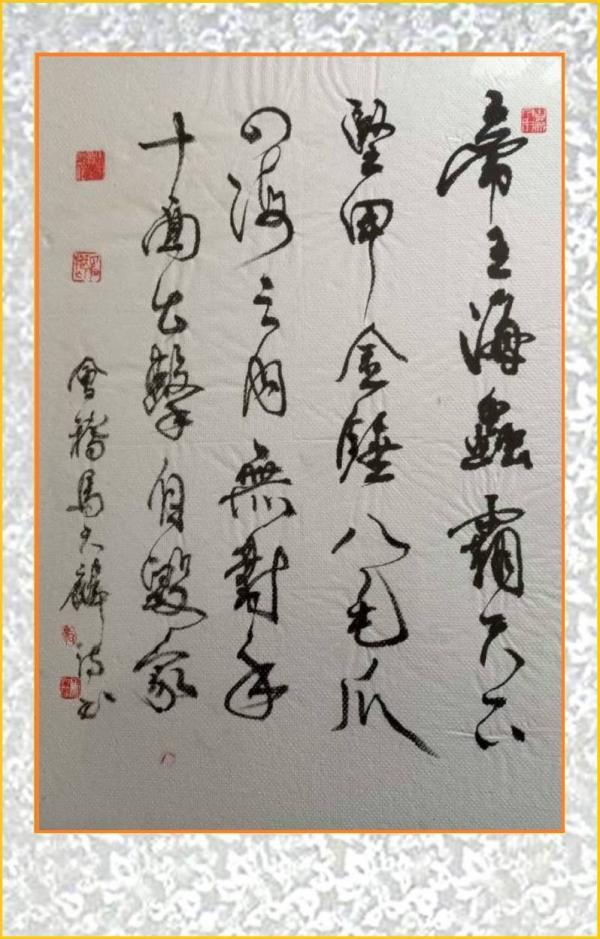 帝王海蟲霸天下
堅甲金錘八毛爪
四海之内無對手
十面出擊自毀家
會稽馬天麟詩书